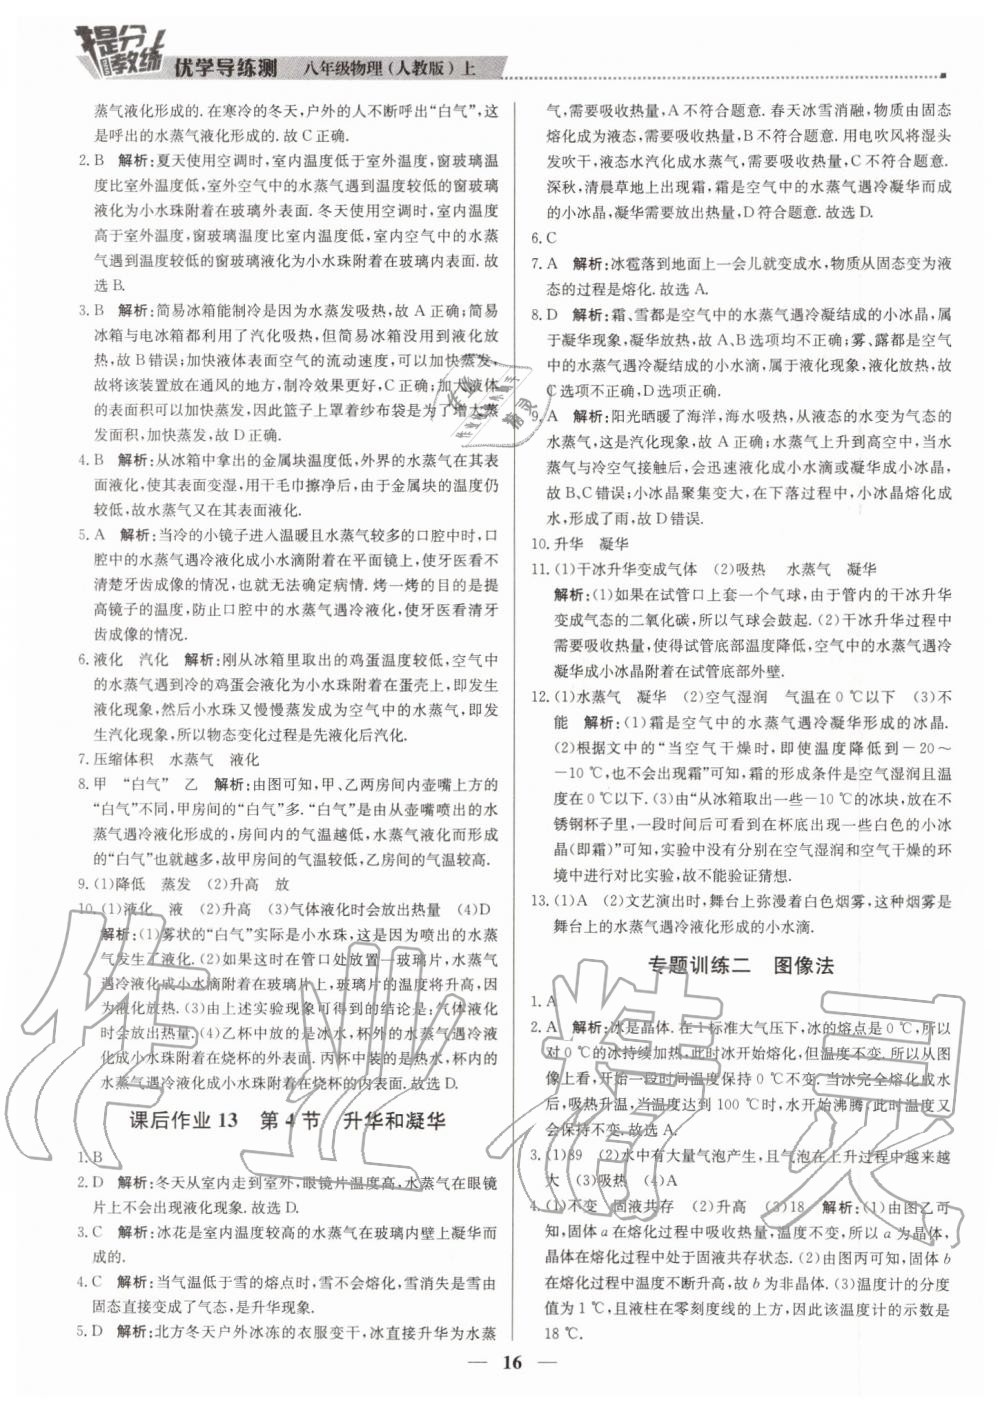 提分教练
优学导练测 八年级物理(人教版)上
蒸气液化形成的.在寒冷的冬天,户外的人不断呼出“白气”,这
是呼出的水蒸气液化形成的.故C正确.
2. B 解析:夏天使用空调时,室内温度低于室外温度,窗玻璃温
度比室外温度低,室外空气中的水蒸气遇到温度较低的窗玻璃
液化为小水珠附着在玻璃外表面.冬天使用空调时,室内温度
高于室外温度,窗玻璃温度比室内温度低,室内空气中的水蒸
气遇到温度较低的窗玻璃液化为小水珠附着在玻璃内表面.故
选B.
3. B 解析:简易冰箱能制冷是因为水蒸发吸热,故A正确;简易
冰箱与电冰箱都利用了汽化吸热,但简易冰箱没用到液化放
热,故B错误;加快液体表面空气的流动速度,可以加快蒸发,
故将该装置放在通风的地方,制冷效果更好,C正确;加大液体
的表面积可以加快蒸发,因此篮子上罩着纱布袋是为了增大蒸
发面积,加快蒸发,故D正确.
4. B 解析:从冰箱中拿出的金属块温度低,外界的水蒸气在其表
面液化,使其表面变湿,用干毛巾擦净后,由于金属块的温度仍
较低,故水蒸气又在其表面液化.
5. A 解析:当冷的小镜子进入温暖且水蒸气较多的口腔中时,口
腔中的水蒸气遇冷液化成小水滴附着在平面镜上,使牙医看不
清楚牙齿成像的情况,也就无法确定病情.烤一烤的目的是提
高镜子的温度,防止口腔中的水蒸气遇冷液化,使牙医看清牙
齿成像的情况.
6. 液化 汽化 解析:刚从冰箱里取出的鸡蛋温度较低,空气中
的水蒸气遇到冷的鸡蛋会液化为小水珠附着在蛋壳上,即发生
液化现象,然后小水珠又慢慢蒸发成为空气中的水蒸气,即发
生汽化现象,所以物态变化过程是先液化后汽化.
7. 压缩体积 水蒸气 液化
8. 甲 “白气” 乙 解析:由图可知,甲、乙两房间内壶嘴上方的
“白气”不同,甲房间的“白气”多.“白气”是由从壶嘴喷出的水
蒸气遇冷液化形成的,房间内的气温越低,水蒸气液化而形成
的“白气”也就越多,故甲房间的气温较低,乙房间的气温较高.
9. (1)降低 蒸发 (2)升高 放
10. (1)液化 液 (2)升高 (3)气体液化时会放出热量 (4)D
解析:(1)雾状的“白气”实际是小水珠,这是因为喷出的水蒸
气发生了液化.(2)如果这时在管口处放置一玻璃片,水蒸气
液化成小水滴附着在玻璃片上,玻璃片的温度将升高,因
为液化放热.(3)由上述实验现象可得到的结论是:气体液化
时会放出热量.(4)乙杯中放的是冰水,杯外的水蒸气遇冷液
化成小水珠附着在烧杯的外表面.丙杯中装的是热水,杯内的
水蒸气遇冷液化成小水珠附着在烧杯的内表面.故选D.
课后作业13 第4节 升华和凝华
1. B
2. D 解析:冬天从室内走到室外,眼镜片温度高,水蒸气在眼镜
片上不会出现液化现象.故选D.
3. C 解析:冰花是室内温度较高的水蒸气在玻璃内壁上凝华而
成的.
4. C 解析:当气温低于雪的熔点时,雪不会熔化,雪消失是雪由
固态直接变成了气态,是升华现象.
5. D 解析:北方冬天户外冰冻的衣服变干,冰直接升华为水蒸
气,需要吸收热量,A不符合题意.春天冰雪消融,物质由固态
熔化成为液态,需要吸收热量,B不符合题意.用电吹风将湿头
发吹干,液态水汽化成水蒸气,需要吸收热量,C不符合题意.
深秋,清晨草地上出现霜,霜是空气中的水蒸气遇冷凝华而成
的小冰晶,凝华需要放出热量,D符合题意.故选D.
6. C
7. A 解析:冰雹落到地面上一会儿就变成水,物质从固态变为液
态的过程是熔化.故选A.
8. D 解析:霜、雪都是空气中的水蒸气遇冷凝结成的小冰晶,属
于凝华现象,凝华放热,故A、B选项均不正确;雾、露都是空气
中的水蒸气遇冷凝结成的小水滴,属于液化现象,液化放热,故
C选项不正确,D选项正确.
9. A 解析:阳光晒暖了海洋,海水吸热,从液态的水变为气态的
水蒸气,这是汽化现象,故A正确;水蒸气上升到高空中,当水
蒸气与冷空气接触后,会迅速液化成小水滴或凝华成小冰晶,
故B、C错误;小冰晶聚集变大,在下落过程中,小冰晶熔化成
水,形成了雨,故D错误.
10. 升华 凝华
11. (1)干冰升华变成气体 (2)吸热 水蒸气 凝华
解析:(1)如果在试管口上套一个气球,由于管内的干冰升华
变成气态的二氧化碳,所以气球会鼓起.(2)干冰升华过程中
需要吸收热量,使得试管底部温度降低,空气中的水蒸气遇冷
凝华成小冰晶附着在试管底部外壁.
12. (1)水蒸气 凝华 (2)空气湿润 气温在0 ℃以下 (3)不
能 解析:(1)霜是空气中的水蒸气遇冷凝华形成的冰晶.
(2)根据文中的“当空气干燥时,即使温度降低到-20~
-10 ℃,也不会出现霜”可知,霜的形成条件是空气湿润且温
度在0 ℃以下.(3)由“从冰箱取出一些-10 ℃的冰块,放在不
锈钢杯子里,一段时间后可看到在杯底出现一些白色的小冰
晶(即霜)”可知,实验中没有分别在空气湿润和空气干燥的环
境中进行对比实验,故不能验证猜想.
13. (1)A (2)文艺演出时,舞台上弥漫着白色烟雾,这种烟雾是
舞台上的水蒸气遇冷液化形成的小水滴.
专题训练二 图像法
1. A
2. A 解析:冰是晶体.在1标准大气压下,冰的熔点是0 ℃,所以
对0 ℃的冰持续加热,此时冰开始熔化,但温度不变.所以从图
像上看,开始一段时间温度保持0 ℃不变.当冰完全熔化成水
后,吸热升温,当温度达到100 ℃时,水开始沸腾,此时温度又
会保持不变.故选A.
3. (1)89 (2)水中有大量气泡产生,且气泡在上升过程中越来越
大 (3)吸热 (4)A
4. (1)不变 固液共存 (2)升高 (3)18 解析:(1)由图乙可
知,固体a在熔化过程中吸收热量,温度不变,所以a为晶体,
晶体在熔化过程中处于固液共存状态.(2)由图丙可知,固体b
在熔化过程中温度不断升高,故b为非晶体.(3)温度计的分度
值为1 ℃,且液柱在零刻度线的上方,因此该温度计的示数是
18 ℃.
16
作业精灵